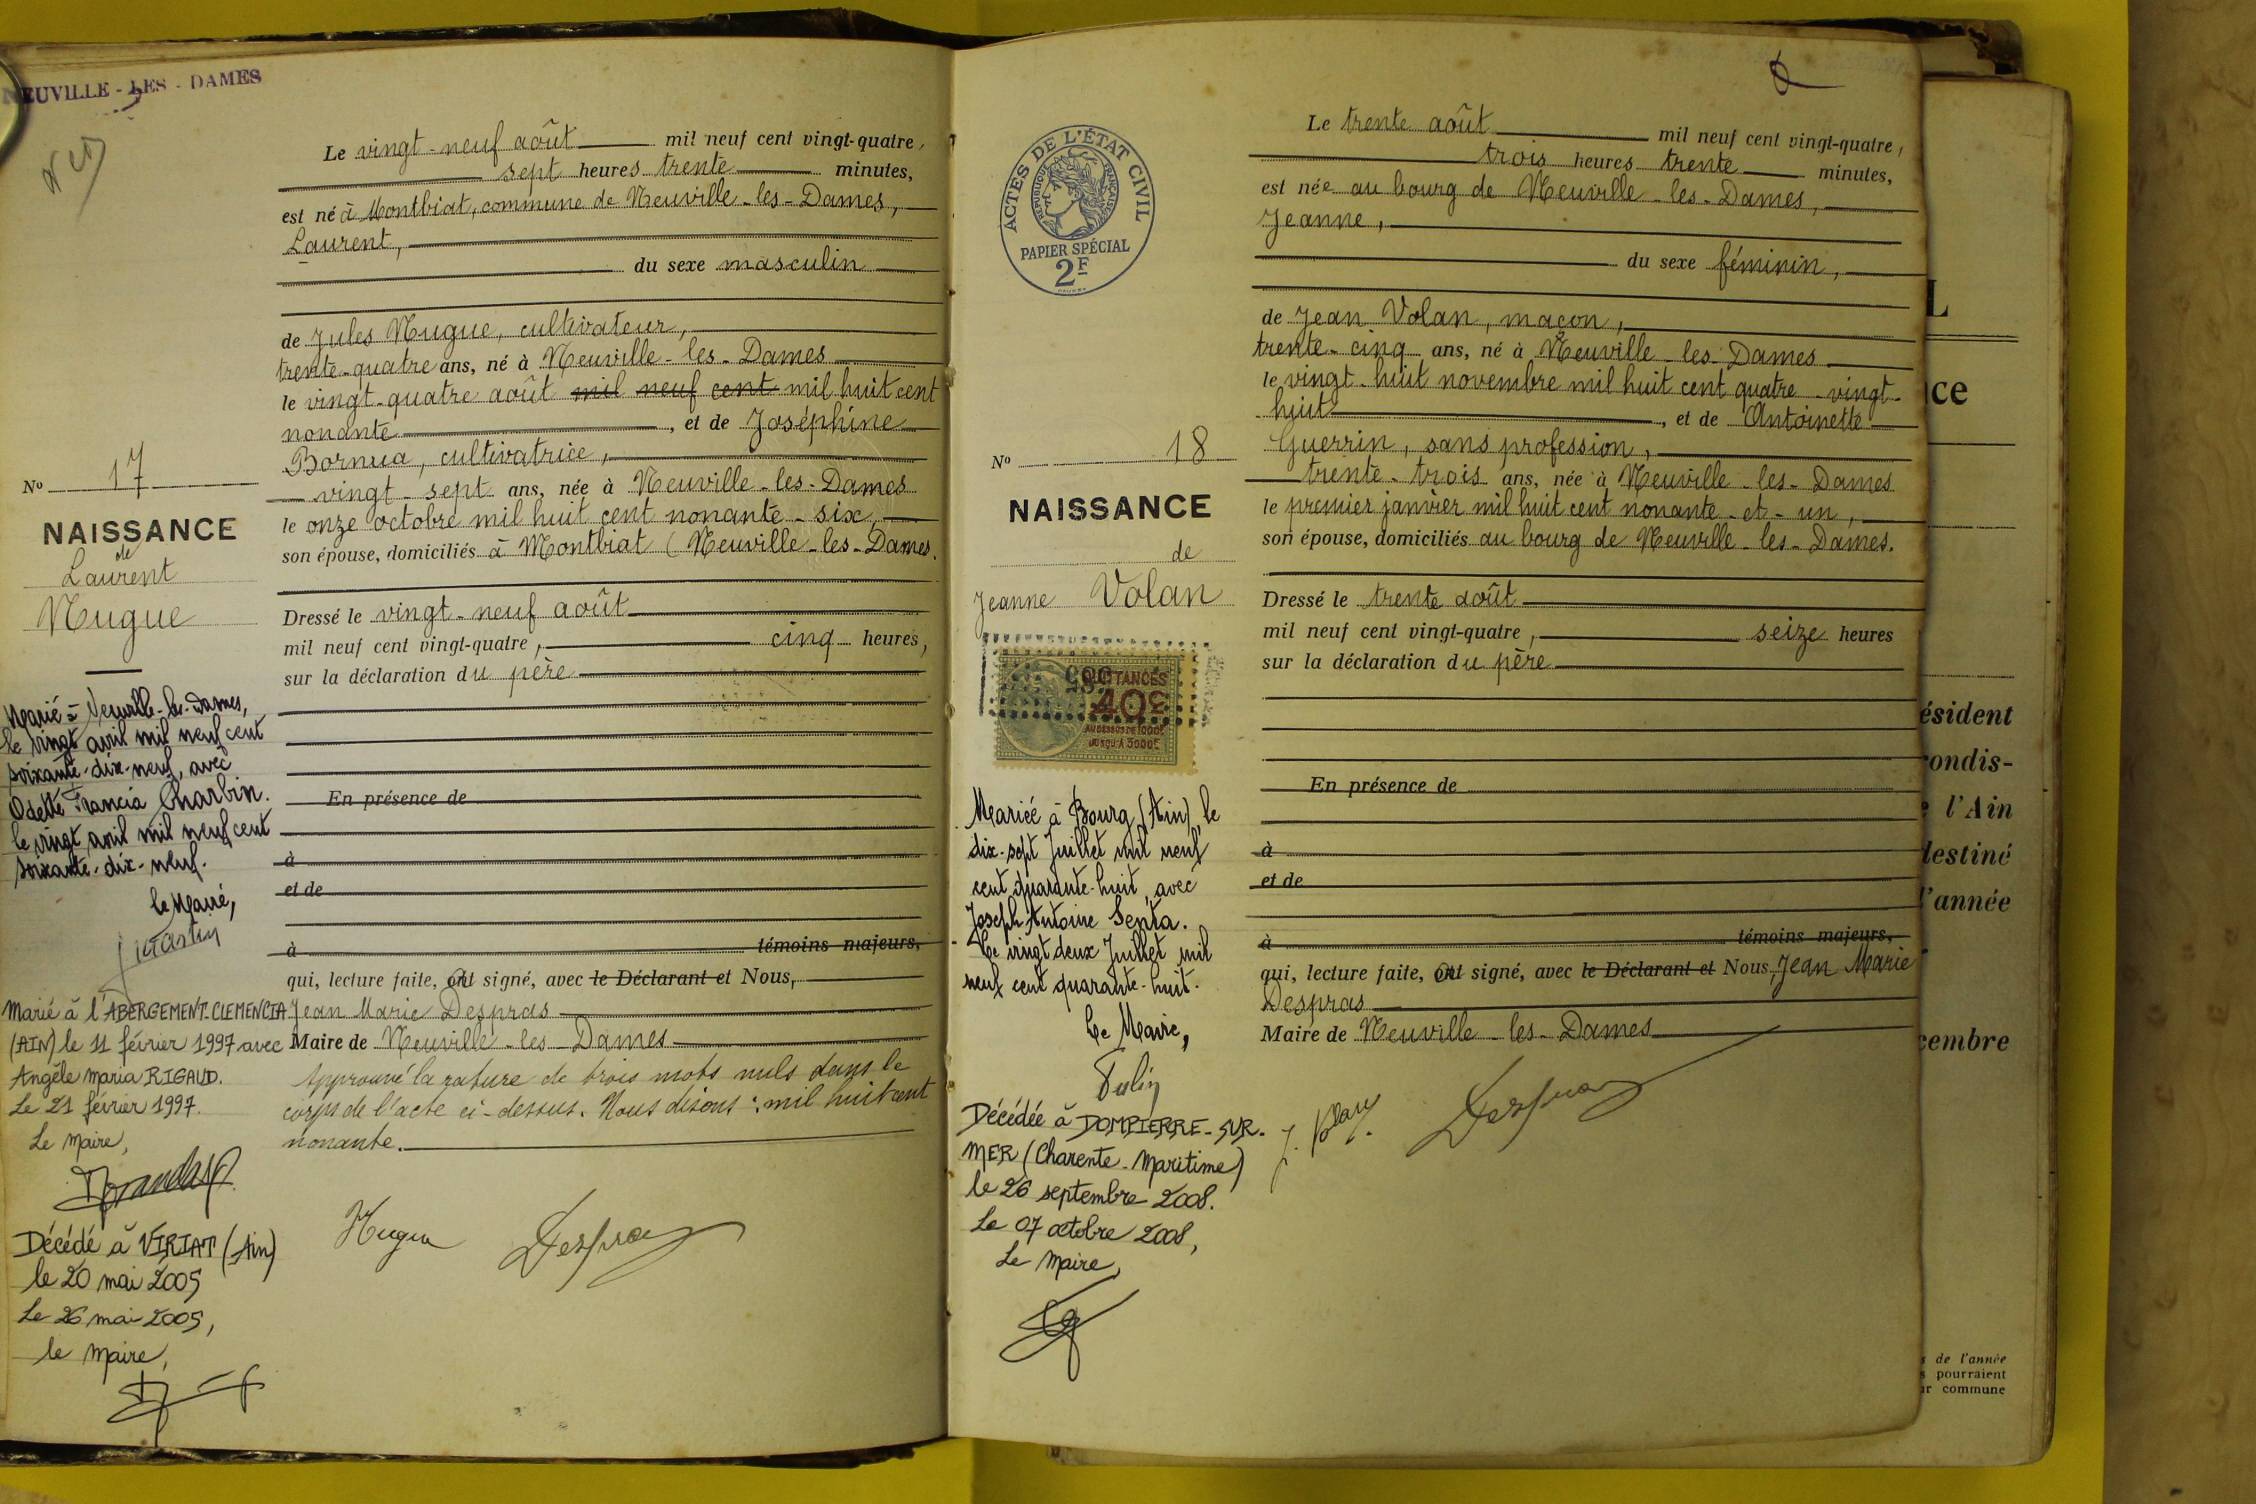 NEUVILLE - LES - DAMES
Le vingt-neuf août mil neuf cent vingt-quatre,
sept heures trente minutes,
est né à Montbiat, commune de Neuville-les-Dames,
Laurent,
du sexe masculin
de Jules Nugue, cultivateur,
trente-quatre ans, né à Neuville-les-Dames
le vingt-quatre août mil neuf cent mil huit cent
nonante, et de Joséphine
Bornua, cultivatrice,
vingt-sept ans, née à Neuville-les-Dames
le onze octobre mil huit cent nonante-six,
son épouse, domiciliés à Montbiat (Neuville-les-Dames.
Dressé le vingt-neuf août
mil neuf cent vingt-quatre, cinq heures,
sur la déclaration du père
En présence de
à
et de
à témoins majeurs,
qui, lecture faite, ont signé, avec le Déclarant et Nous,
Jean Marie Despras
Maire de Neuville-les-Dames
Approuvé la rature de trois mots nuls dans le
corps de l'acte ci-dessus. Nous disons : mil huit cent
nonante.
Nugue Despras
No 17
NAISSANCE
de
Laurent
Nugue
Marié à Neuville-les-Dames,
le vingt avril mil neuf cent
soixante-dix-neuf, avec
Odette Francia Charbin.
le vingt avril mil neuf cent
soixante-dix-neuf.
le Maire,
Marié à l'ABERGEMENT-CLEMENCIA
(AIN) le 11 février 1997 avec
Angèle Maria RIGAUD.
Le 21 février 1997.
Le Maire,
Décédé à VIRIAT (Ain)
le 20 mai 2005
Le 26 mai 2005,
le Maire,
ACTES DE L'ÉTAT CIVIL
RÉPUBLIQUE FRANÇAISE
PAPIER SPÉCIAL
2F
No 18
NAISSANCE
de
Jeanne Volan
QUITTANCES
40c
AU DESSUS DE 1000F
JUSQU'À 3000F
Mariée à Bourg (Ain), le
dix-sept Juillet mil neuf
cent quarante-huit, avec
Joseph Antoine Senta.
Le vingt deux Juillet mil
neuf cent quarante-huit.
Le Maire,
Décédée à DOMPIERRE-SUR-
MER (Charente-Maritime)
le 26 septembre 2008.
Le 07 octobre 2008,
Le Maire,
Le trente août mil neuf cent vingt-quatre,
trois heures trente minutes,
est née au bourg de Neuville-les-Dames,
Jeanne,
du sexe féminin,
de Jean Volan, maçon,
trente-cinq ans, né à Neuville-les-Dames
le vingt-huit novembre mil huit cent quatre-vingt-
huit, et de Antoinette
Guerrin, sans profession,
trente-trois ans, née à Neuville-les-Dames
le premier janvier mil huit cent nonante-et-un,
son épouse, domiciliés au bourg de Neuville-les-Dames.
Dressé le trente août
mil neuf cent vingt-quatre, seize heures
sur la déclaration du père
En présence de
à
et de
à témoins majeurs,
qui, lecture faite, ont signé, avec le Déclarant et Nous, Jean Marie
Despras
Maire de Neuville-les-Dames
J. Volan Despras
L
ce
ésident
ondis-
l'Ain
destiné
l'année
cembre
de l'année
pourraient
commune